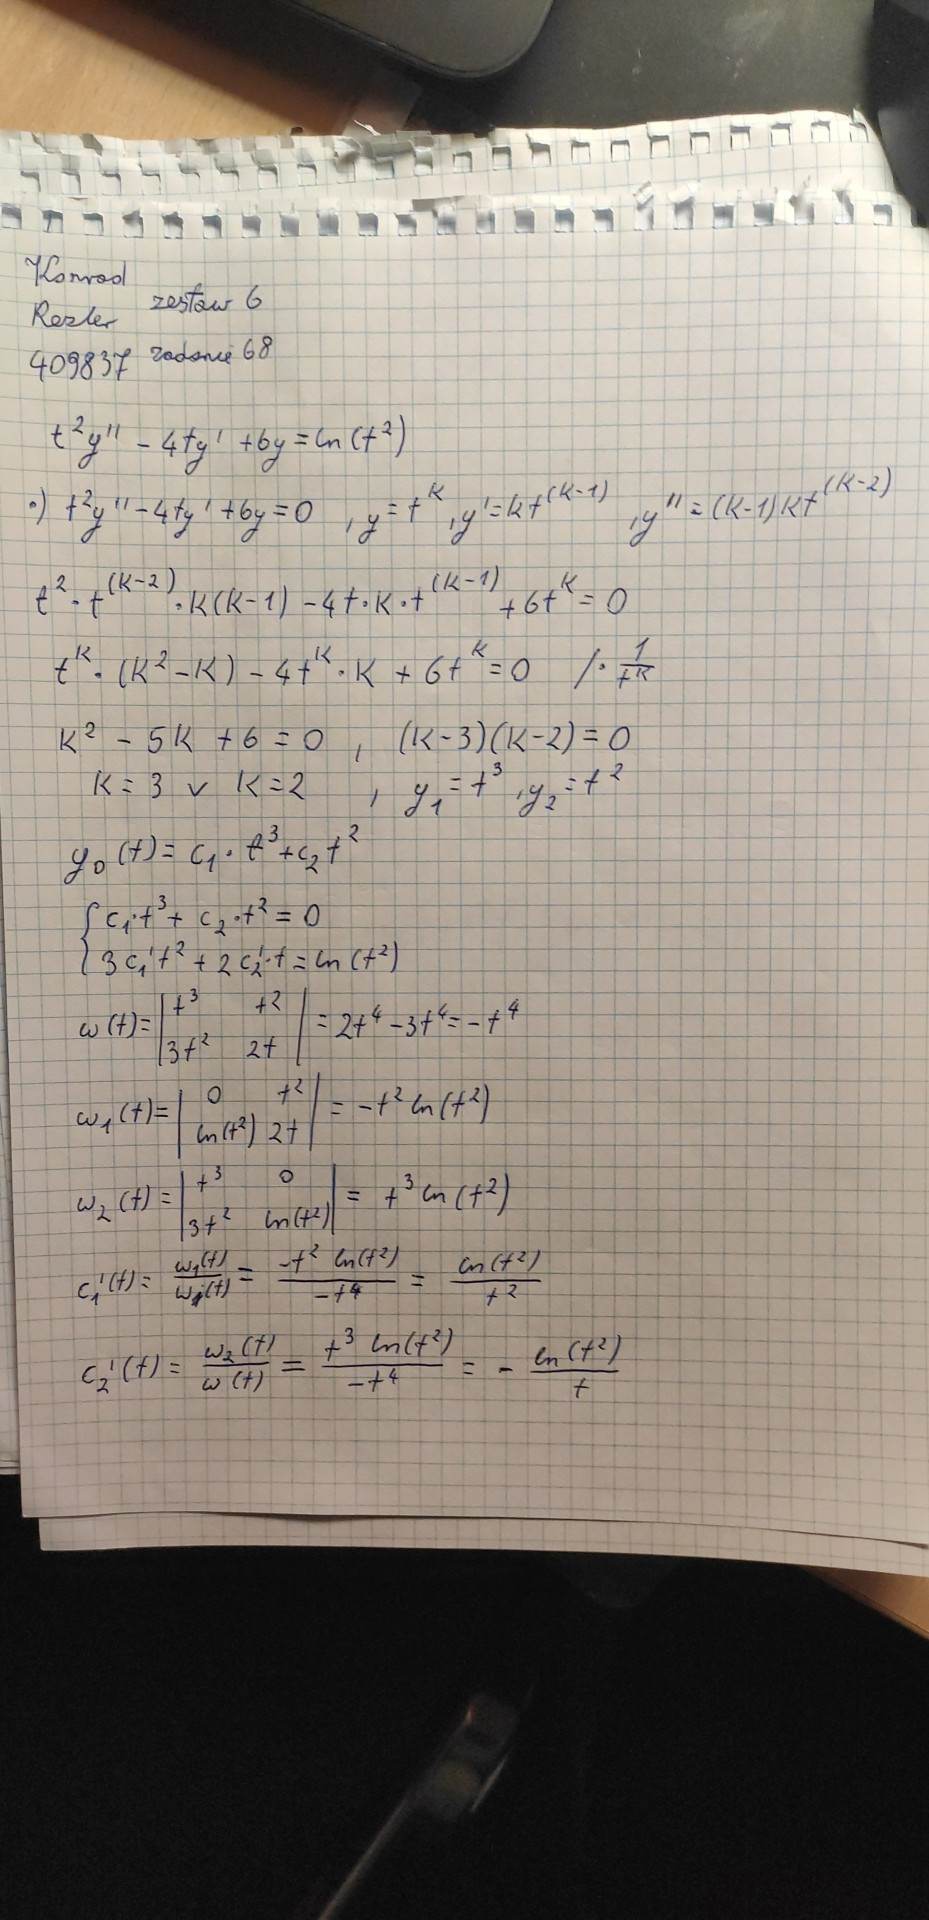 Konrad
Rezler zestaw 6
409837 zadanie 68
t²y'' - 4ty' + 6y = ln(t²)
•) t²y'' - 4ty' + 6y = 0 , y = t^k , y' = kt^(k-1) , y'' = (k-1)kt^(k-2)
t² · t^(k-2) · k(k-1) - 4t · k · t^(k-1) + 6t^k = 0
t^k · (k² - k) - 4t^k · k + 6t^k = 0 / · 1/t^k
k² - 5k + 6 = 0 , (k-3)(k-2) = 0
k = 3 v k = 2 , y₁ = t³ , y₂ = t²
y₀(t) = c₁ · t³ + c₂t²
{ c₁·t³ + c₂·t² = 0
3c₁'t² + 2c₂'·t = ln(t²)
w(t) = | t³ t² ; 3t² 2t | = 2t⁴ - 3t⁴ = -t⁴
w₁(t) = | 0 t² ; ln(t²) 2t | = -t² ln(t²)
w₂(t) = | t³ 0 ; 3t² ln(t²) | = t³ ln(t²)
c₁'(t) = w₁(t)/w(t) = -t² ln(t²)/-t⁴ = ln(t²)/t²
c₂'(t) = w₂(t)/w(t) = t³ ln(t²)/-t⁴ = - ln(t²)/t